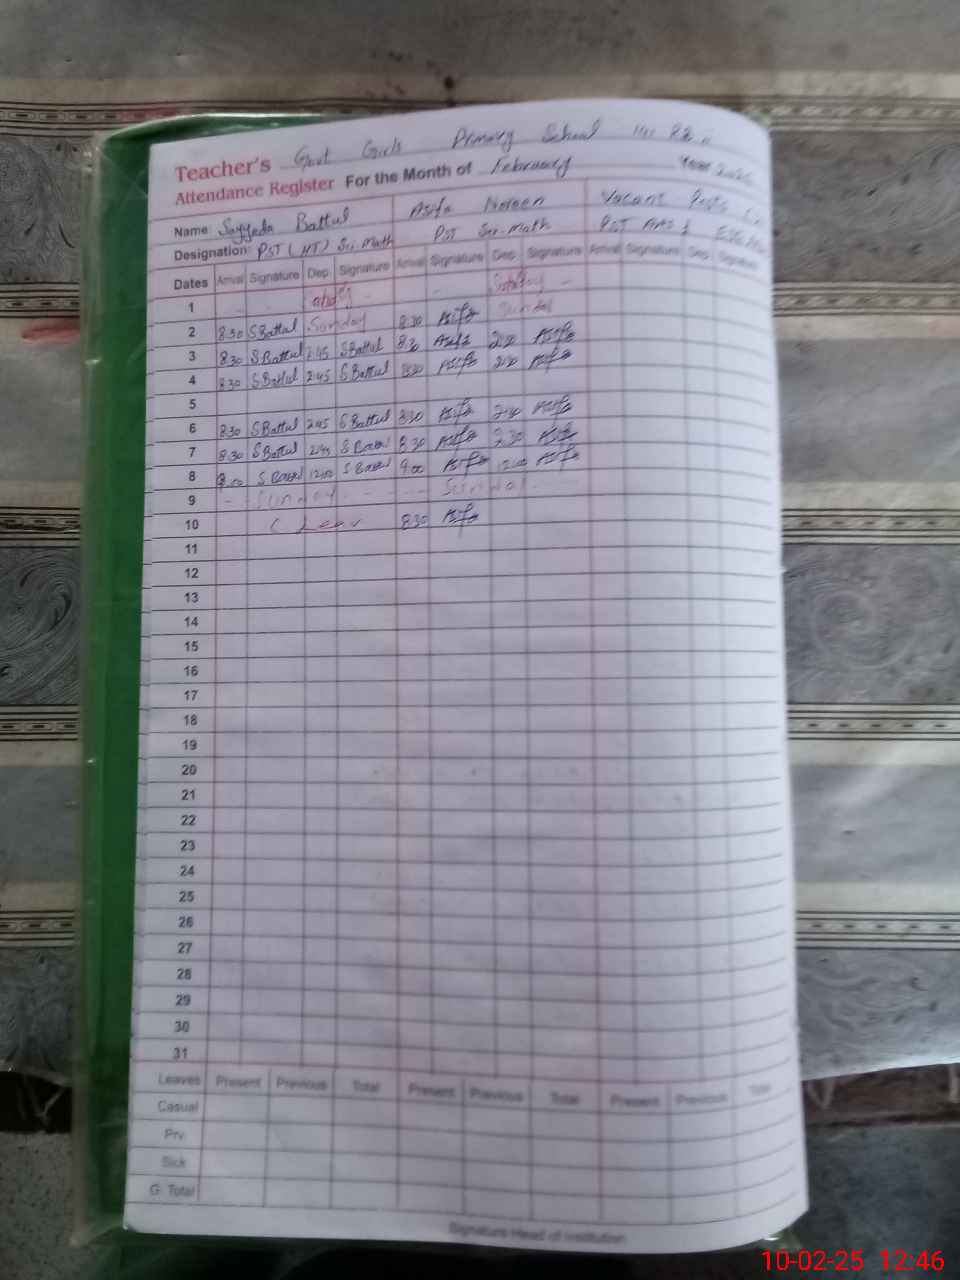 Teacher's Govt Girls Primary School
Attendance Register For the Month of February Year
Name: Sayyeda Battul Asifa Noreen Vacant Posts
Designation: PST (HT) Sci. Math PST Sci. math PST
Dates Arrival Signature Dep. Signature Arrival Signature Dep. Signature Arrival Signature Dep. Signature
1
2 8:30 SBattul Sunday 8:30 Asifa Sunday
3 8:30 SBattul 2:45 SBattul 8:30 Asifa 2:30 Asifa
4 8:30 SBattul 2:45 SBattul 8:30 Asifa 2:30 Asifa
5
6 8:30 SBattul 2:45 SBattul 8:30 Asifa 2:30 Asifa
7 8:30 SBattul 2:45 SBattul 8:30 Asifa 2:30 Asifa
8 SBattul 12:00 SBattul 9:00 Asifa 12:00 Asifa
9 - Sunday - - - - - Sunday - -
10 8:30 Asifa
11
12
13
14
15
16
17
18
19
20
21
22
23
24
25
26
27
28
29
30
31
Leaves Present Previous Total Present Previous Total Present Previous Total
Casual
Prv.
Sick
G. Total
Signature Head of Institution
10-02-25 12:46